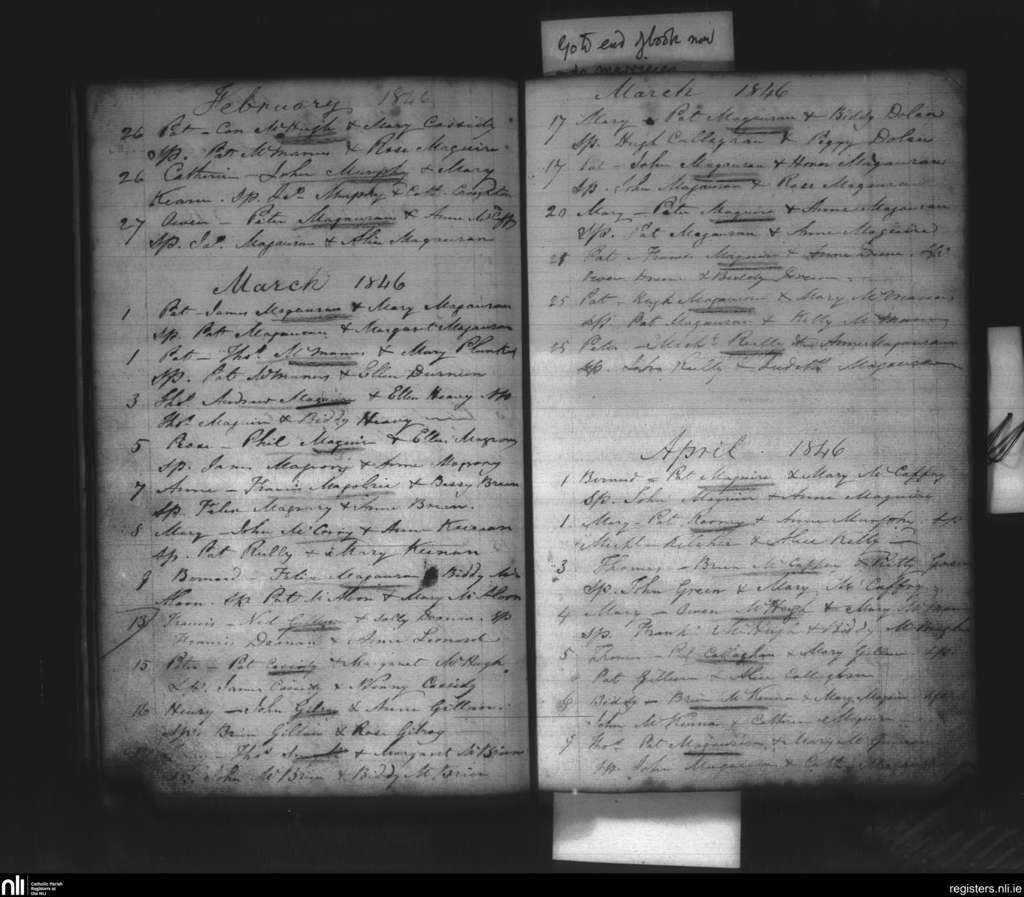 Go to end of book now
February 1846
26 Pat - Con McHugh & Mary Cassidy
Sp. Pat McManus & Rose Maguire
26 Catherin - John Murphy & Mary
Kearn. Sp. Murphy & Cath.
27 Owen - Peter Magauran & Anne McCaffy
Sp. Jas. Magauran & Alice Magauran
March 1846
1 Pat - James Magauran & Mary Magauran
Sp. Patt Magauran & Margaret Magauran
1 Pat - Thos. McManus & Mary Plunket
Sp. Pat McManus & Ellen Durnien
3 Thos. Andrew Maguire & Ellen Heavy Sp
Thos. Maguire & Biddy Heavy
5 Rose - Phil Maguire & Ellen Magrory
Sp. James Magrory & Anne Magrory
7 Anne - Francis & Bessy Brien
Sp. Felix Magrary & Anne Brien
8 Mary - John McEnroy & Anne Keenan
Sp. Pat Reilly & Mary Keenan
9 Bernard - Felix Magauran & Biddy Mc
Aloon. Sp Pat McAloon & Mary McAloon
13 Francis - Neil & Sally Doonan. Sp
Francis Doonan & Anne Leonard
15 Peter - Pat Cassidy & Margaret McHugh
James Cassidy & Nanny Cassidy
16 Henry - John Gilroy & Anne Gillan
Sp. Brien Gillan & Rose Gilroy
Thos. & Margaret McBrien
Sp. John McBrien & Biddy McBrien
March 1846
17 Mary - Pat Magauran & Biddy Dolan
Sp. Hugh Callaghan & Peggy Dolan
17 Pat - John Magauran & Honor Magauran
Sp. John Magauran & Rose Magauran
20 Mary - Peter Maguire & Anne Magauran
Sp. Pat Magauran & Anne Maguire
25 Pat - Francis Maguire & Anne Drum. Sp.
Owen Drum & Biddy Drum
25 Pat - Hugh Magauran & Mary McManus
Sp. Pat Magauran & Kitty McManus
25 Peter - Michl. Reilly & Anne Magauran
Sp. John Reilly & Judith Magauran
April 1846
1 Bernard - Pat Maguire & Mary McCaffry
Sp. John Maguire & Anne Maguire
1 Mary - Pat Rooney & Anne Murphy Sp
Michl. & Alice Reilly
3 Thomas - Brien McCaffry & Green
Sp. John Green & Mary McCaffry
4 Mary - Owen McHugh & Mary
Sp. Frank McHugh & Biddy McHugh
5 Thomas - Pat Callaghan & Mary Gillan Sp.
Pat Gillan & Alice Callaghan
8 Biddy - Brien McKenna & Mary Maguire Sp
John McKenna & Cathrine Maguire
9 Thos. Pat Magauran & Mary
Sp. John Magauran & Cath.
nli
Catholic Parish
Registers at
the NLI
registers.nli.ie